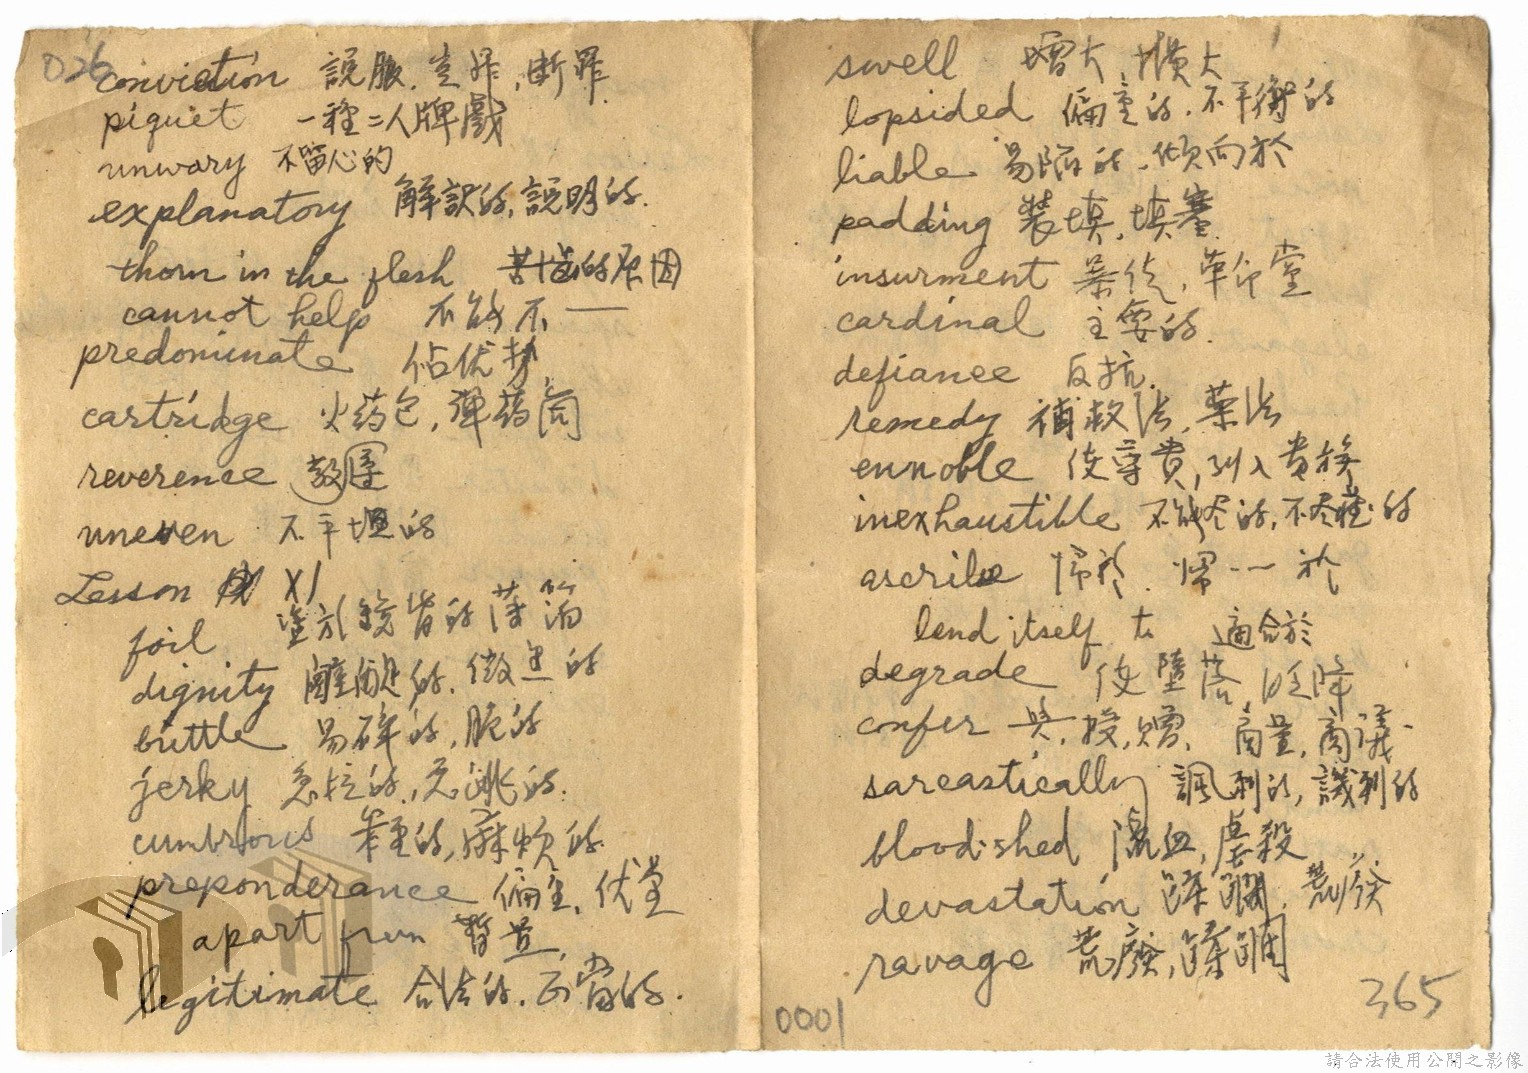 026
conviction 説服,定罪,断罪
piquet 一種二人牌戲
unwary 不留心的
explanatory 解釈的,説明的.
thorn in the flesh 苦惱的原因
cannot help 不能不——
predominate 佔优势
cartridge 火药包,弹药筒
reverence
uneven 不平坦的
Lesson XI
foil 塗於鏡背的薄箔
dignity
brittle 易碎的,脆的
jerky 急拉的,
cumbrous 笨重的,麻烦的
preponderance 偏重,优量
apart from 暫置
legitimate 合法的.正當的.
swell 增大 擴大
lopsided 偏重的.不平衡的
liable 易陷的.傾向於
padding 裝填,填塞
insurment
cardinal 主要的.
defiance 反抗.
remedy 補救法,藥法
ennoble 使尊貴,列入貴族
inexhaustible 不能尽的,不尽的
ascribe 歸於 歸……於
lend itself to 適合於
degrade 使墮落,貶降
confer 與,授,贈、商量,商議
sarcastically 諷刺的,譏刺的
blood-shed 流血,虐殺
devastation 蹂躪.荒廢
ravage 荒廢,蹂躪
0001
365
請合法使用公開之影像